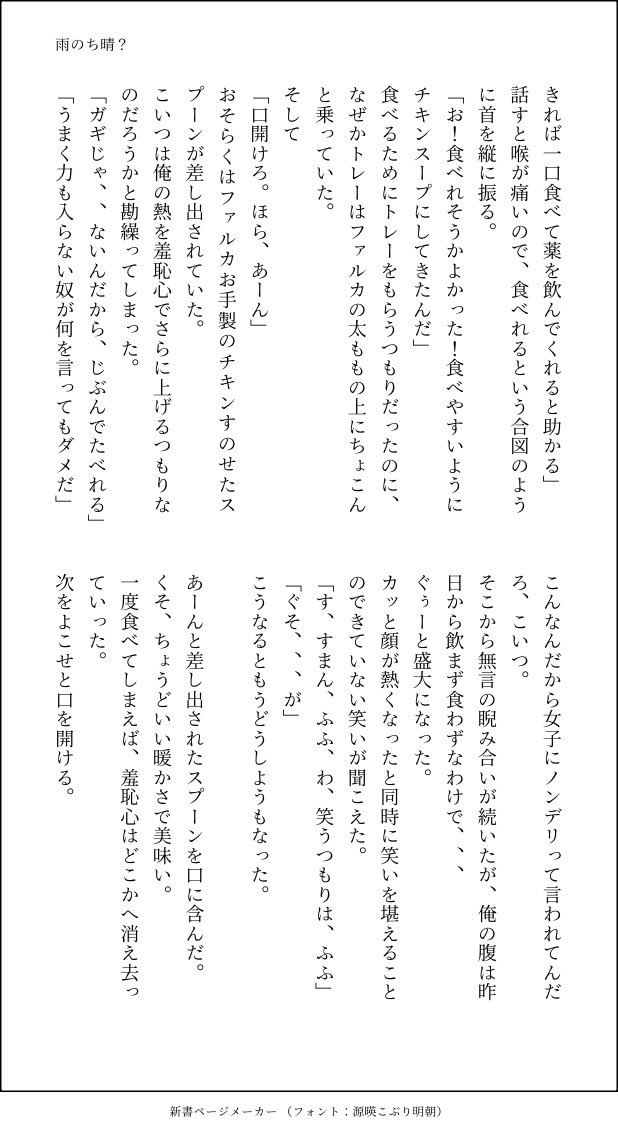 雨のち晴？
きれば一口食べて薬を飲んでくれると助かる」
話すと喉が痛いので、食べれるという合図のよう
に首を縦に振る。
「お！食べれそうかよかった！食べやすいように
チキンスープにしてきたんだ」
食べるためにトレーをもらうつもりだったのに、
なぜかトレーはファルカの太ももの上にちょこん
と乗っていた。
そして
「口開けろ。ほら、あーん」
おそらくはファルカお手製のチキンすのせたス
プーンが差し出されていた。
こいつは俺の熱を羞恥心でさらに上げるつもりな
のだろうかと勘繰ってしまった。
「ガギじゃ、、ないんだから、じぶんでたべれる」
「うまく力も入らない奴が何を言ってもダメだ」
こんなんだから女子にノンデリって言われてんだ
ろ、こいつ。
そこから無言の睨み合いが続いたが、俺の腹は昨
日から飲まず食わずなわけで、、、
ぐぅーと盛大になった。
カッと顔が熱くなったと同時に笑いを堪えること
のできていない笑いが聞こえた。
「す、すまん、ふふ、わ、笑うつもりは、ふふ」
「ぐそ、、、が」
こうなるともうどうしようもなった。
あーんと差し出されたスプーンを口に含んだ。
くそ、ちょうどいい暖かさで美味い。
一度食べてしまえば、羞恥心はどこかへ消え去っ
ていった。
次をよこせと口を開ける。
新書ページメーカー（フォント：源暎こぶり明朝）